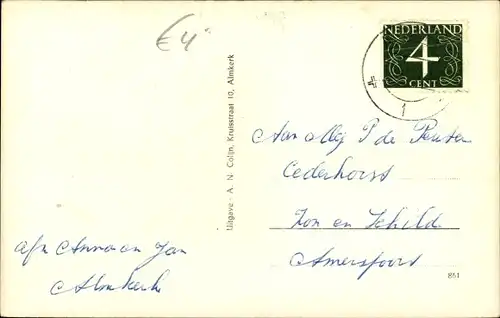 € 4
NEDERLAND
4
CENT
1
Uitgave - A. N. Colijn, Kruisstraat 10, Almkerk
Aan P de Ruiter
Cederhorst
Zon en Schild
Amersfoort
afz Anna en Jan
Almkerk
861